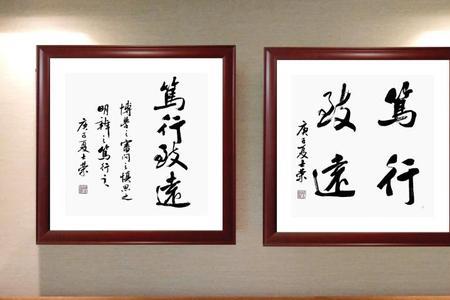 篤行致遠
博學之審問之慎思之
明辯之篤行之
庚子夏士荣
篤行
致遠
庚子夏士荣